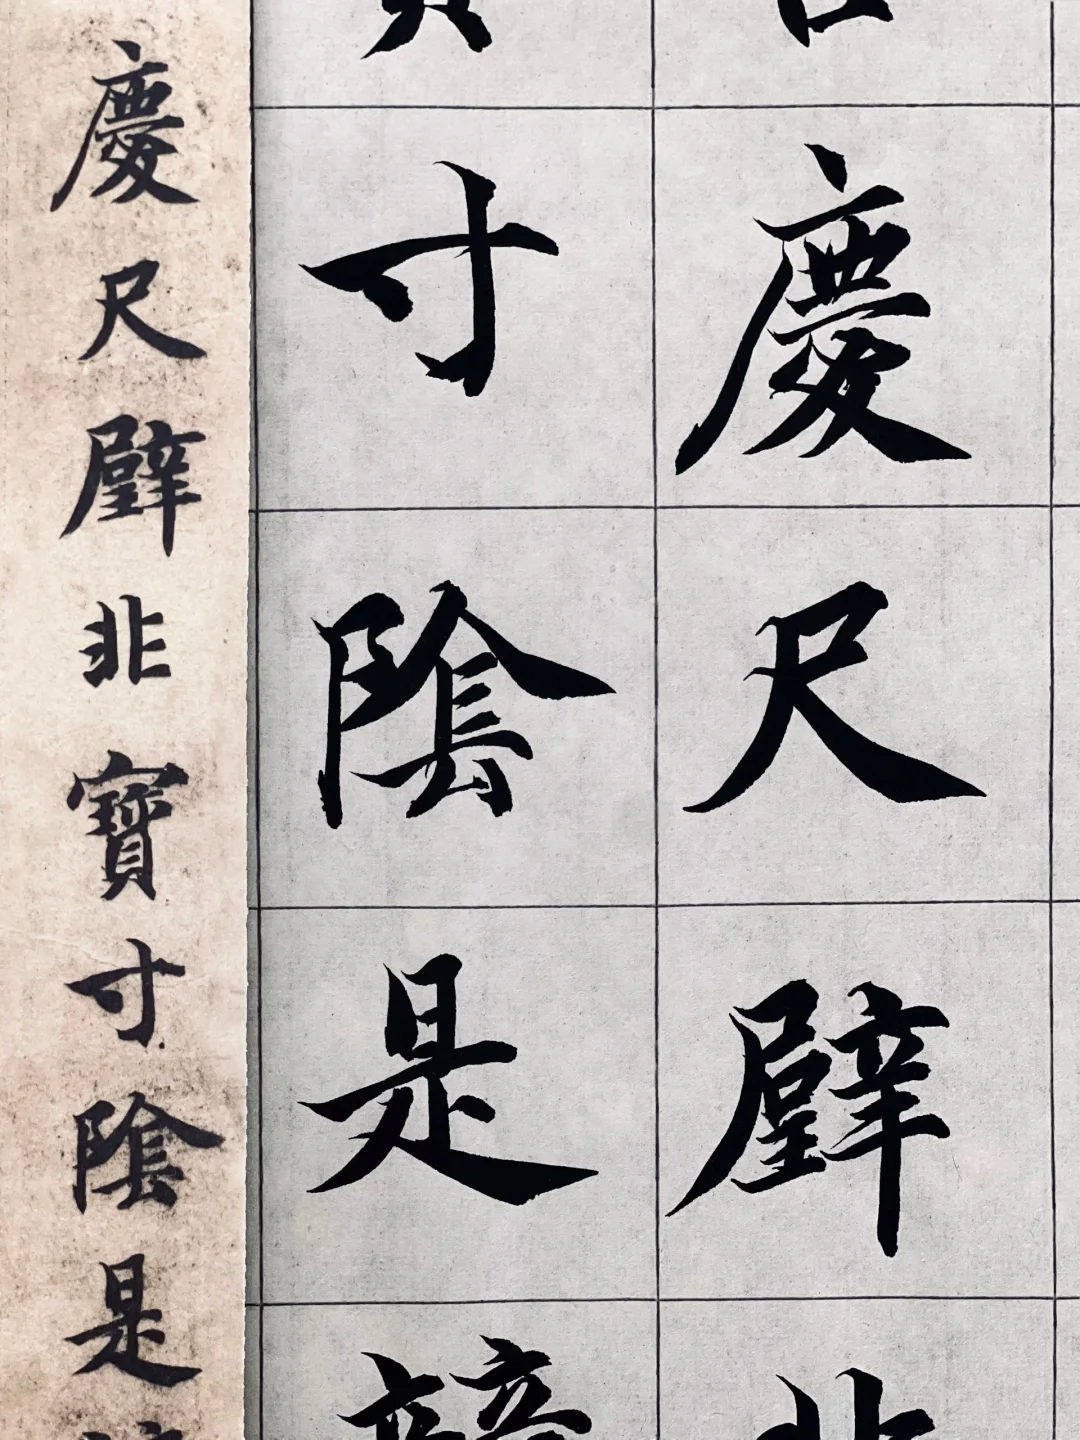 慶尺璧非
寸陰是
慶尺璧非寶寸陰是